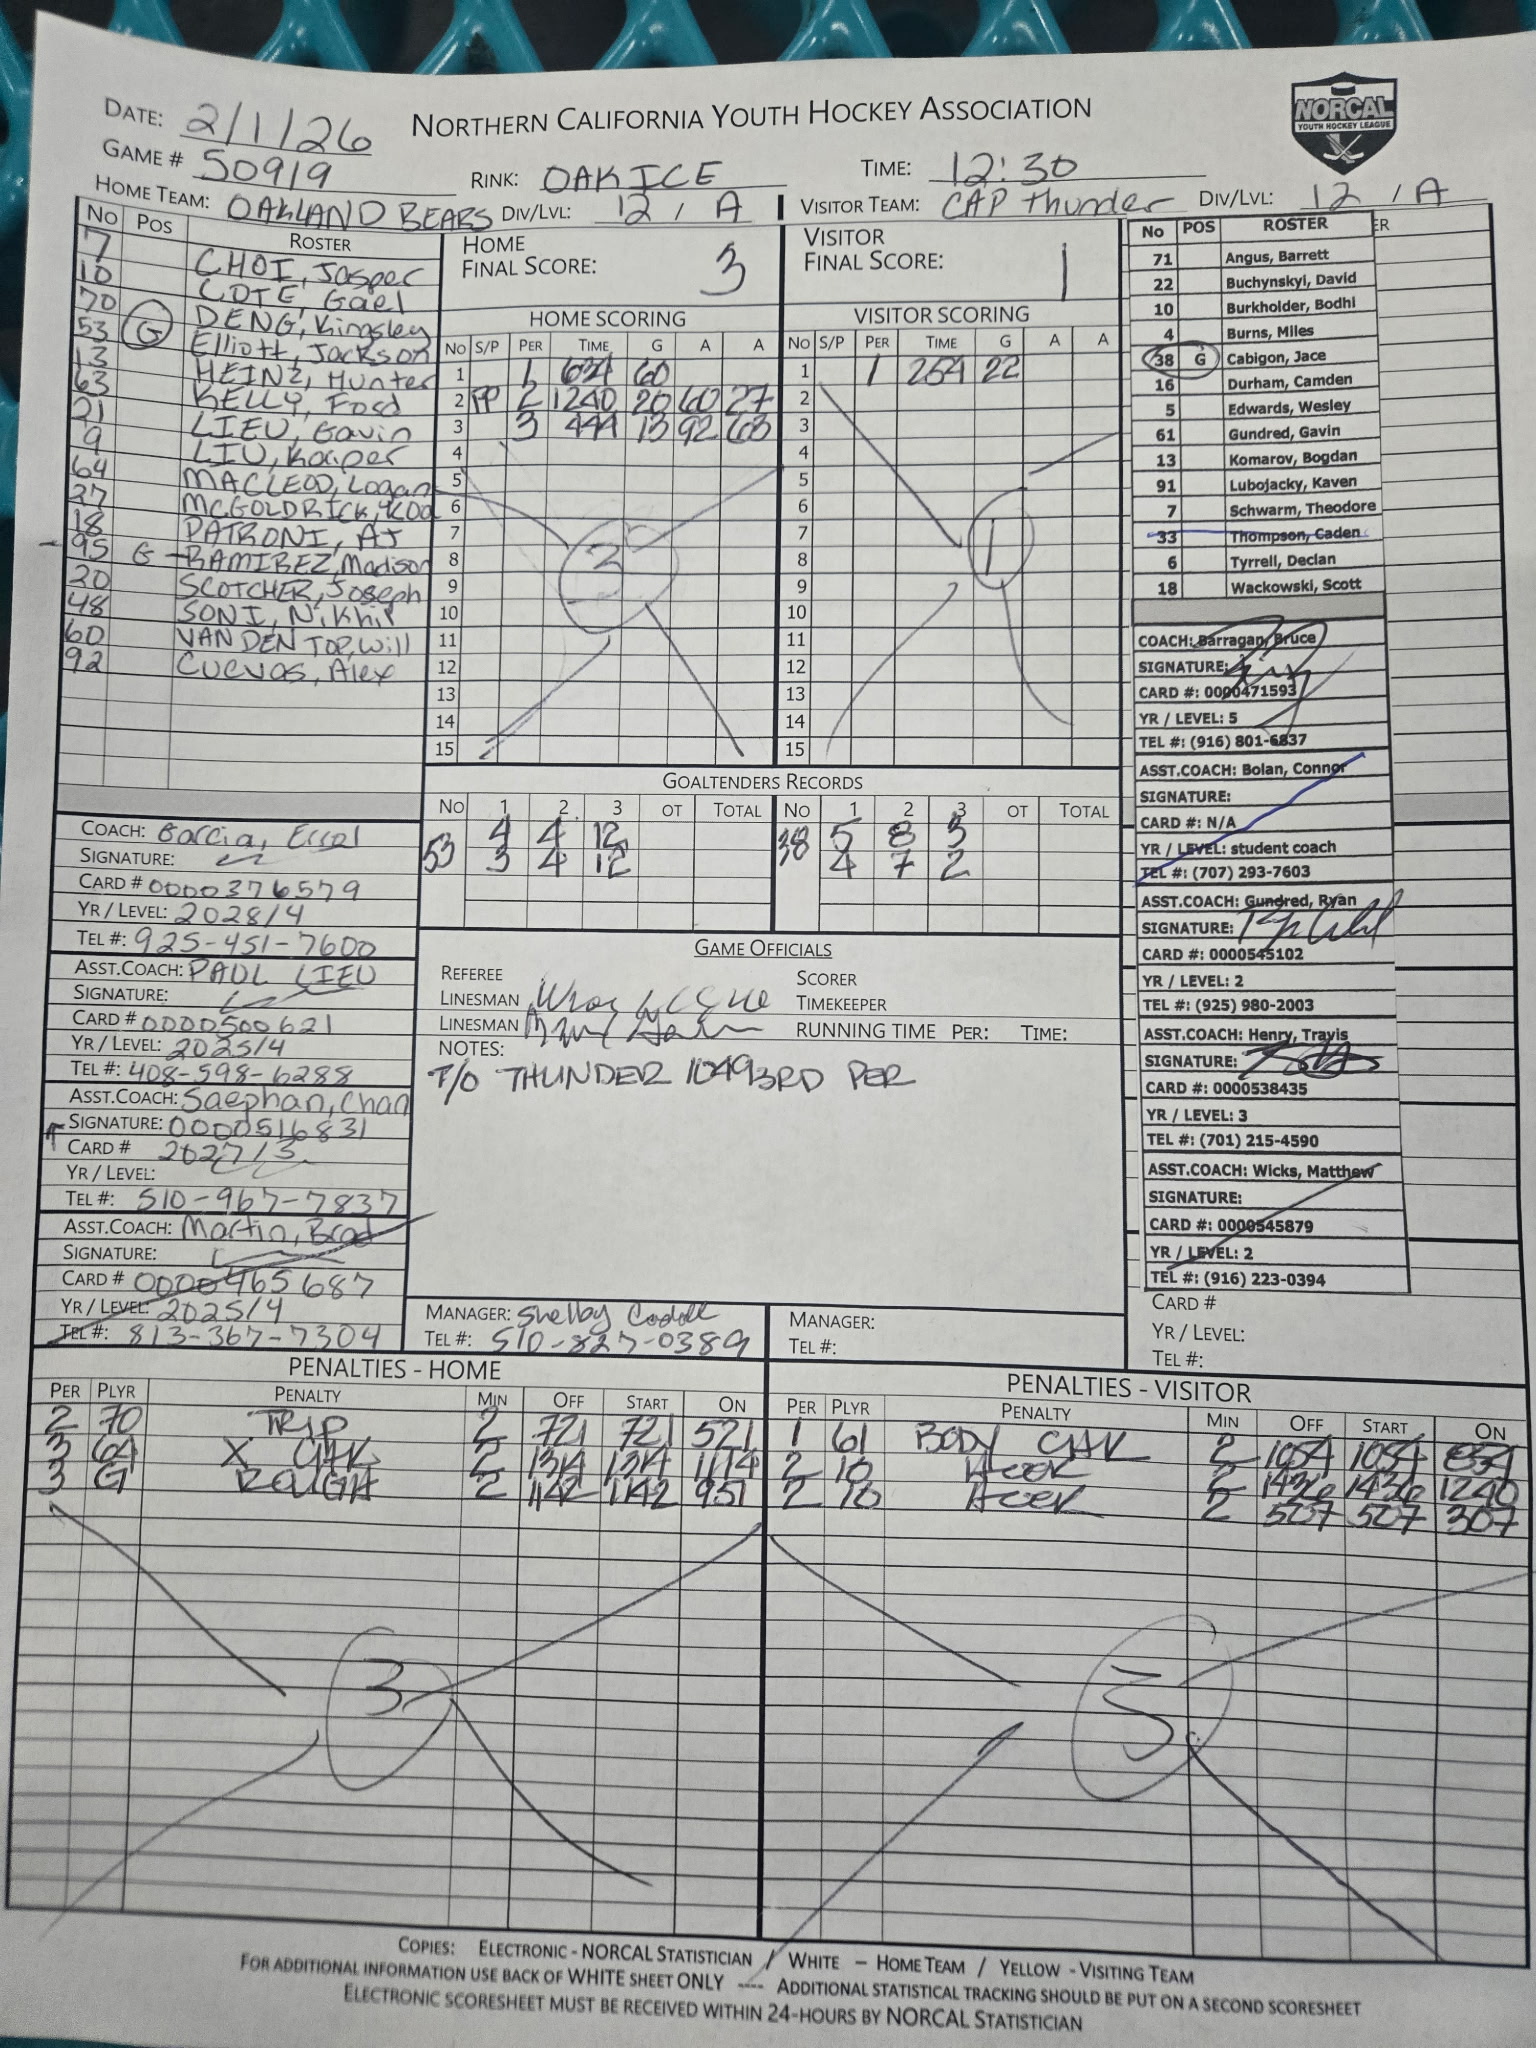 DATE: 2/1/26
NORTHERN CALIFORNIA YOUTH HOCKEY ASSOCIATION
NORCAL
YOUTH HOCKEY LEAGUE
GAME # 50919
RINK: OAK ICE
TIME: 12:30
HOME TEAM: OAKLAND BEARS DIV/LVL: 12 / A
VISITOR TEAM: CAP thunder DIV/LVL: 12 / A
NO POS ROSTER
7 CHOI, Jasper
10 COTE, Gael
70 DENG, Kingsley
53 G Elliott, Jackson
13 HEINZ, Hunter
63 KELLY, Ford
21 LIEU, Gavin
9 LIU, Kasper
64 MACLEOD, Logan
27 MCGOLDRICK,
18 PATRONI, AJ
95 G RAMIREZ, Madison
20 SCOTCHER, Joseph
48 SONI, Nikhil
60 VAN DEN TOP, Will
92 CUEVAS, Alex
COACH: Garcia, Errol
SIGNATURE:
CARD # 0000376579
YR / LEVEL: 2028/4
TEL #: 925-451-7600
ASST.COACH: PAUL LIEU
SIGNATURE:
CARD # 0000500621
YR / LEVEL: 2025/4
TEL #: 408-598-6288
ASST.COACH: Saephan, Chan
SIGNATURE: 0000516831
CARD # 2027/3
YR / LEVEL:
TEL #: 510-967-7837
ASST.COACH: Martin, Brad
SIGNATURE:
CARD # 0000465687
YR / LEVEL: 2025/4
TEL #: 813-367-7304
HOME
FINAL SCORE: 3
VISITOR
FINAL SCORE: 1
HOME SCORING
NO S/P PER TIME G A A
1 1 634 60
2 PP 2 1240 20 60 27
3 3 444 13 92 63
4
5
6
7
8
9
10
11
12
13
14
15
3
VISITOR SCORING
NO S/P PER TIME G A A
1 1 254 22
2
3
4
5
6
7
8
9
10
11
12
13
14
15
1
GOALTENDERS RECORDS
NO 1 2 3 OT TOTAL NO 1 2 3 OT TOTAL
53 4 4 12 38 5 8 3
3 4 12 4 7 2
GAME OFFICIALS
REFEREE
SCORER
LINESMAN
TIMEKEEPER
LINESMAN
RUNNING TIME PER: TIME:
NOTES:
T/O THUNDER 1049 3RD PER
MANAGER: Shelby
TEL #: 510-827-0389
MANAGER:
TEL #:
ER
No POS ROSTER
71 Angus, Barrett
22 Buchynskyi, David
10 Burkholder, Bodhi
4 Burns, Miles
38 G Cabigon, Jace
16 Durham, Camden
5 Edwards, Wesley
61 Gundred, Gavin
13 Komarov, Bogdan
91 Lubojacky, Kaven
7 Schwarm, Theodore
33 Thompson, Caden
6 Tyrrell, Declan
18 Wackowski, Scott
COACH: Barragan, Bruce
SIGNATURE:
CARD #: 0000471593
YR / LEVEL: 5
TEL #: (916) 801-6837
ASST.COACH: Bolan, Connor
SIGNATURE:
CARD #: N/A
YR / LEVEL: student coach
TEL #: (707) 293-7603
ASST.COACH: Gundred, Ryan
SIGNATURE:
CARD #: 0000545102
YR / LEVEL: 2
TEL #: (925) 980-2003
ASST.COACH: Henry, Travis
SIGNATURE:
CARD #: 0000538435
YR / LEVEL: 3
TEL #: (701) 215-4590
ASST.COACH: Wicks, Matthew
SIGNATURE:
CARD #: 0000545879
YR / LEVEL: 2
TEL #: (916) 223-0394
CARD #
YR / LEVEL:
TEL #:
PENALTIES - HOME
PER PLYR PENALTY MIN OFF START ON
2 70 TRIP 2 721 721 521
3 64 X CHK 2 1314 1314 1114
3 G ROUGH 2 1142 1142 951
3
PENALTIES - VISITOR
PER PLYR PENALTY MIN OFF START ON
1 61 BODY CHK 2 1054 1054 854
2 10 HOOK 2 1436 1436 1240
2 10 HOOK 2 507 507 307
3
COPIES: ELECTRONIC - NORCAL STATISTICIAN / WHITE – HOME TEAM / YELLOW - VISITING TEAM
FOR ADDITIONAL INFORMATION USE BACK OF WHITE SHEET ONLY ---- ADDITIONAL STATISTICAL TRACKING SHOULD BE PUT ON A SECOND SCORESHEET
ELECTRONIC SCORESHEET MUST BE RECEIVED WITHIN 24-HOURS BY NORCAL STATISTICIAN